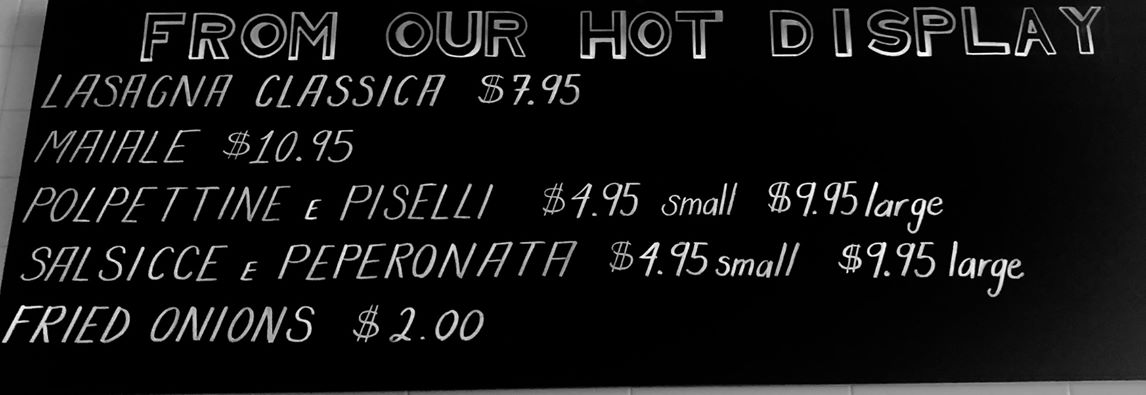 FROM OUR HOT DISPLAY
LASAGNA CLASSICA $7.95
MAIALE $10.95
POLPETTINE E PISELLI $4.95 small $9.95 large
SALSICCE E PEPERONATA $4.95 small $9.95 large
FRIED ONIONS $2.00